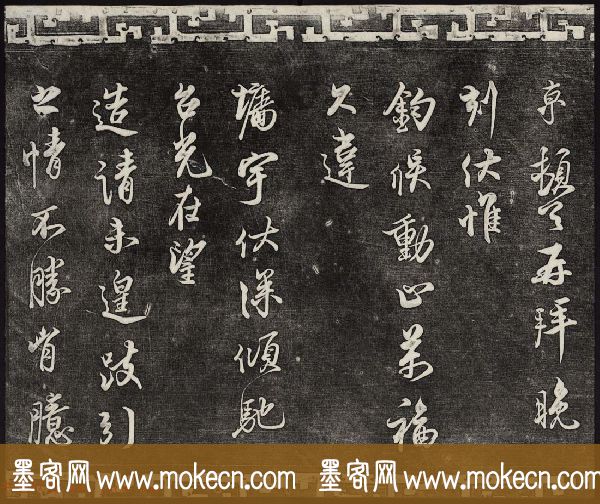 京頓首再拜晚
刻伏惟
鈞候動止萬福
久違
墉宇伏深傾馳
台光在望
造請未遑跂引
之情不勝胷臆
墨客网 www.mokecn.com 墨客网 www.mokecn.com